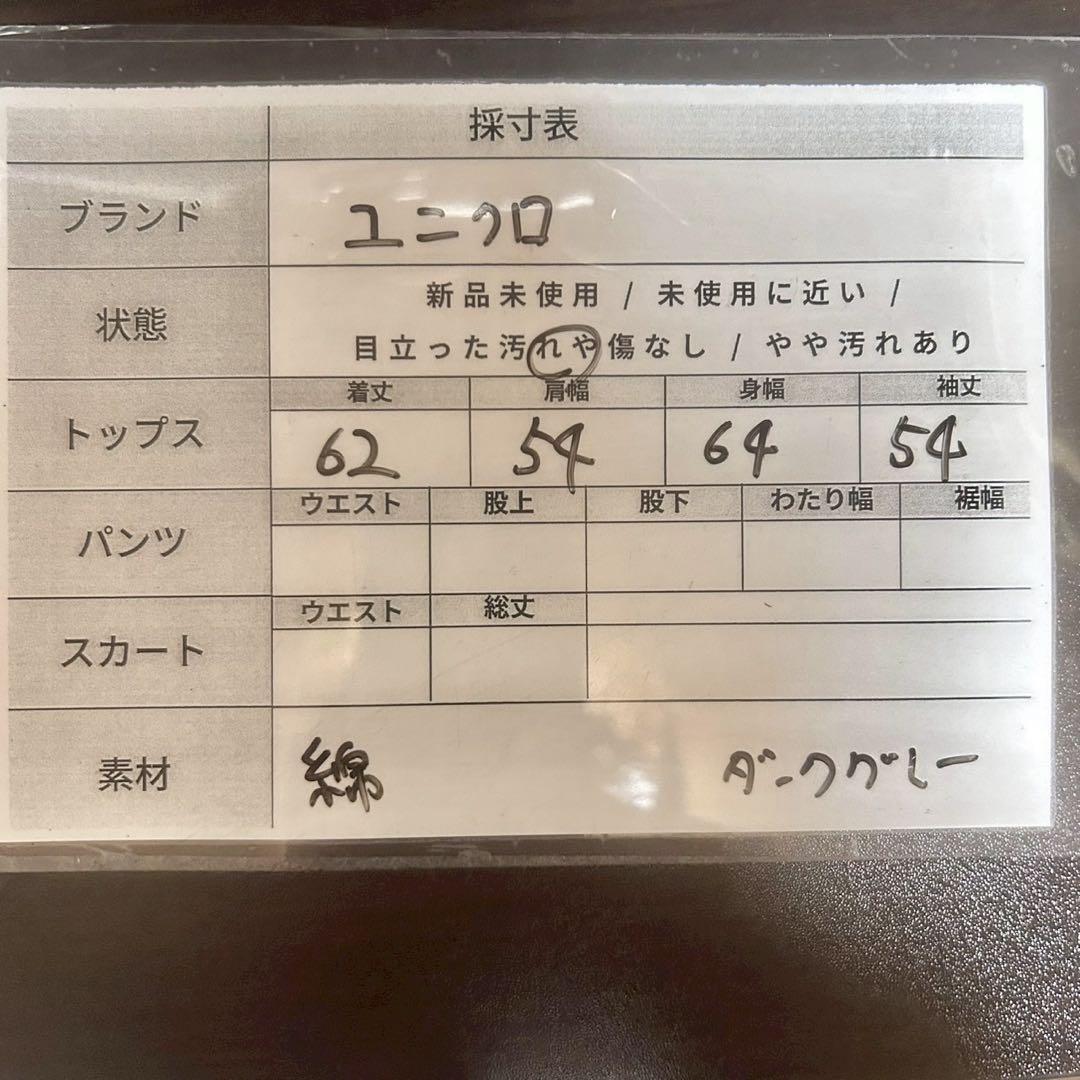 採寸表
ブランド ユニクロ
状態 新品未使用 / 未使用に近い /
目立った汚れや傷なし / やや汚れあり
トップス 着丈 肩幅 身幅 袖丈
62 54 64 54
パンツ ウエスト 股上 股下 わたり幅 裾幅
スカート ウエスト 総丈
素材 綿 ダークグレー